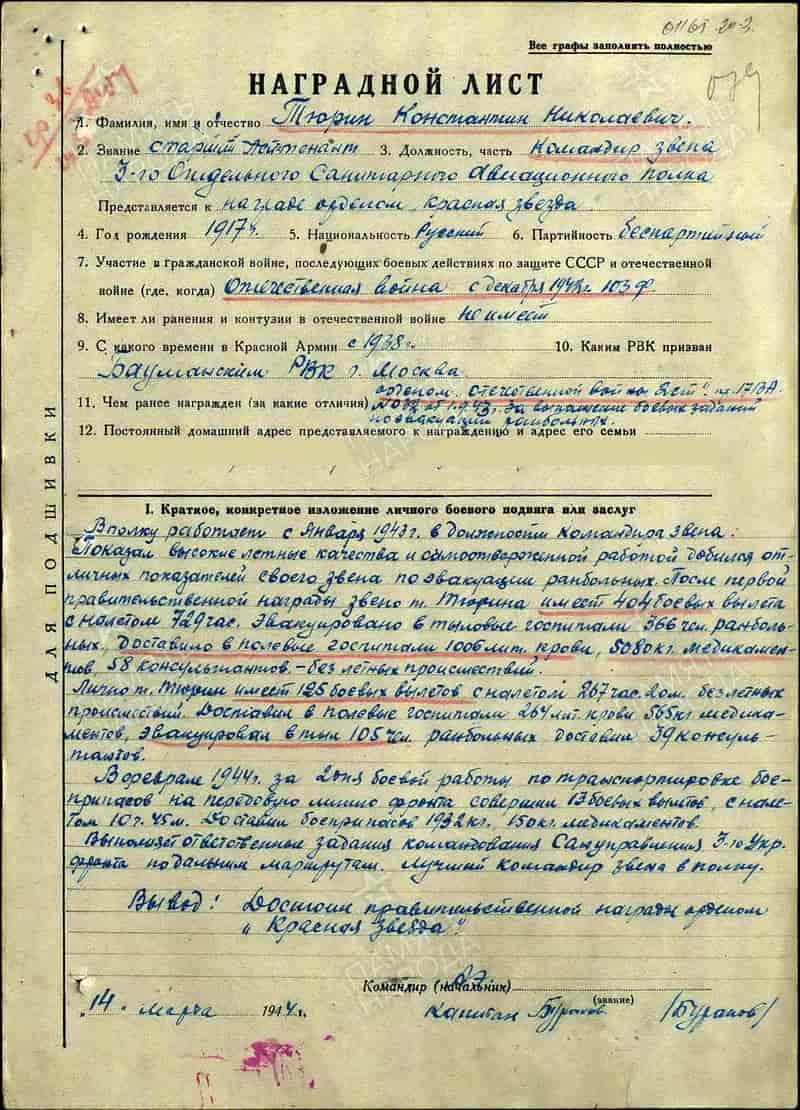 Все графы заполнять полностью
НАГРАДНОЙ ЛИСТ
1. Фамилия, имя и отчество Тюрин Константин Николаевич.
2. Звание старший лейтенант 3. Должность, часть Командир звена
3-го Отдельного Санитарного Авиационного полка
Представляется к награде орденом „красная звезда
4. Год рождения 1917г. 5. Национальность Русский 6. Партийность беспартийный
7. Участие в гражданской войне, последующих боевых действиях по защите СССР и отечественной
войне (где, когда) Отечественная война с декабря
8. Имеет ли ранения и контузии в отечественной войне не имеет
9. С какого времени в Красной Армии с 1938г. 10. Каким РВК призван
Бауманским РВК г. Москва
орденом „отечественной войны 2 ст". пр. 17ВА
11. Чем ранее награжден (за какие отличия) за выполнение боевых заданий
по эвакуации ранбольных.
12. Постоянный домашний адрес представляемого к награждению и адрес его семьи
ДЛЯ ПОДШИВКИ
I. Краткое, конкретное изложение личного боевого подвига или заслуг
В полку работает с января 1943г. в должности командира звена.
Показал высокие летные качества и самоотверженной работой добился от-
личных показателей своего звена по эвакуации ранбольных. После первой
правительственной награды звено т. Тюрина имеет 404 боевых вылета
с налетом 729 час. Эвакуировано в тыловые госпитали 366 чел. ранболь-
ных, доставило в полевые госпитали 1006 лит. крови, 5080 кг. медикамен-
тов, 58 консультантов. – без летных происшествий.
Лично т. Тюрин имеет 125 боевых вылетов с налетом 267 час. 20м. без летных
происшествий. Доставил в полевые госпитали 264 лит. крови 565 кг медика-
ментов, эвакуировал в тыл 105 чел. ранбольных доставил 39 консуль-
тантов.
В феврале 1944г. за 2 дня боевой работы по транспортировке бое-
припасов на передовую линию фронта совершил 13 боевых вылетов, с нале-
том 10 г. 45 м. Доставил боеприпасов 1932 кг. 150 кг. медикаментов.
Выполняет ответственные задания командования Сануправления 3-го Укр.
фронта по дальним маршрутам. лучший командир звена в полку.
Вывод: Достоин правительственной награды орденом
„Красная звезда".
Командир (начальник)
(звание)
„14" марта 1944г. капитан /Бураков/